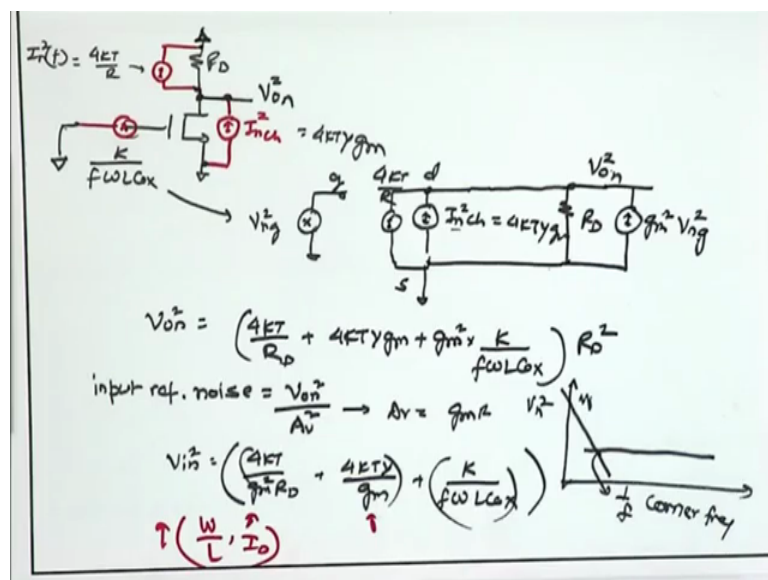 In²(t) = 4KT/R → RD
Von²
Inch² = 4KTγgm
K/fWLCox
Vng² g
4KT/R d Inch² = 4KTγgm RD Von² gm² Vng²
S
Von² = (4KT/RD + 4KTγgm + gm² × K/fWLCox) RD²
input ref. noise = Von²/Av² → Av = gmR
Vin² = ((4KT/gm²RD + 4KTγ/gm) + (K/fWLCox))
↑(W/L, ↑ID) ↑
Vn² 1/f
1/f corner freq